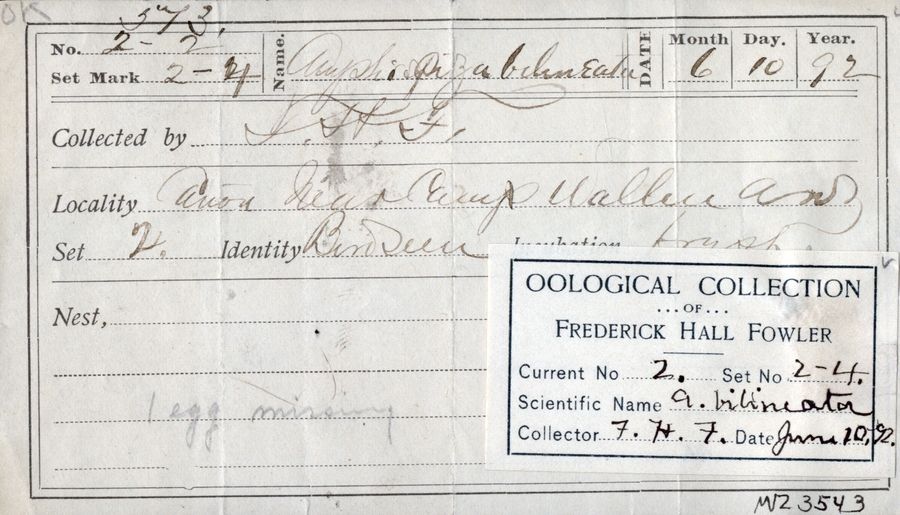 OK
573.
No. 2 - 2
Set Mark 2-4
Name. Amphispiza bilineata
DATE Month 6 Day. 10 Year. 92
Collected by F. H. F.
Locality near Camp Wallen
Set 2. Identity Bird Seen Incubation fresh.
Nest,
1 egg missing
OOLOGICAL COLLECTION
...OF...
FREDERICK HALL FOWLER
Current No 2. Set No 2-4.
Scientific Name a. bilineata
Collector F. H. F. Date June 10, 92.
MVZ 3543